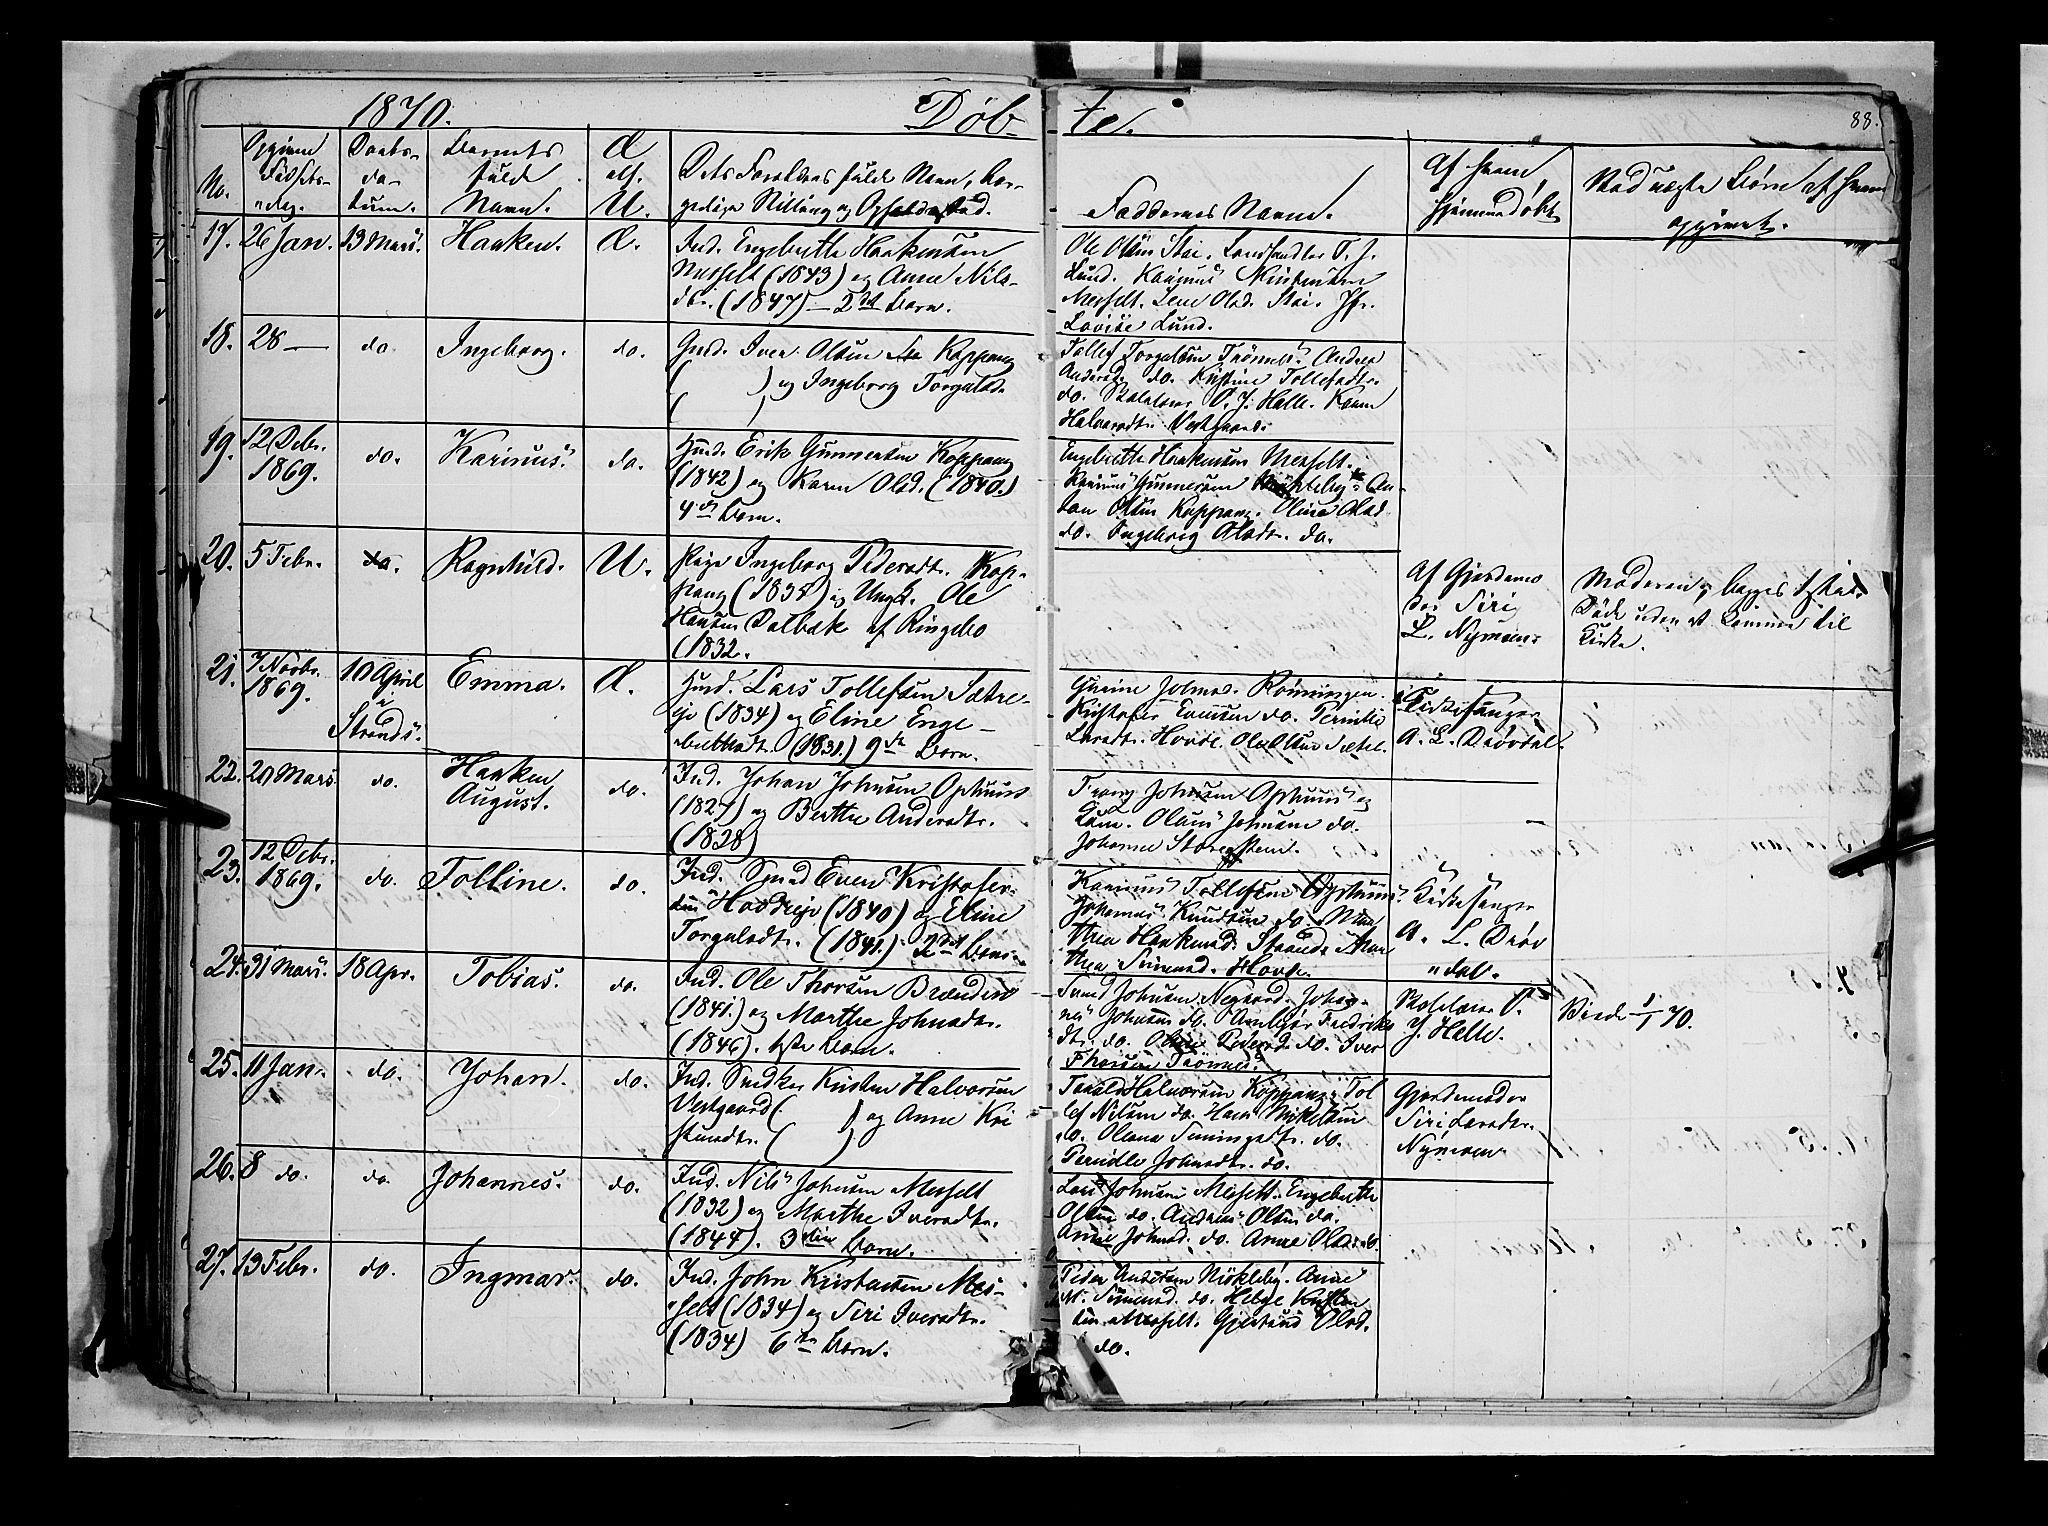 1870. Döb- te. 88.
No.
Opgivne Fødsels- dag.
Daabs- da- tum.
Barnets fulde Navn.
Æ elf. U.
Dets Forældres fulde Navn, bor-
gerlige Stilling og Opholdssted.
Faddernes Navne.
Af hvem hjemmedöbt
Uægte Börn af hvem
opgivet.
17. 26 Jan. 13 Mars. Haaken. Æ.
Ind. Engebrette Haakensen
Messelt (1843) og Anne Nils-
dtr. (1847) – 2det Barn.
Ole Olsen Stai. Landhandler T. J.
Lund. Karinus
Messelt. Lene Olsd. Stai. Jfr.
Lovise Lund.
18. 28 — do. Ingeborg. do.
Gmd. Iver Olsen Koppang
( ) og Ingeborg Torgalsd.
( )
Tollef Torgalsen Trönnes. Andrea
Andersd. do. Kristine Tollefsdtr.
do. Skolelærer O. J. Halle. Karen
Halvorsdtr. Vestgaard.
19. 12 Debr. 1869. do. Karinus. do.
Husm. Erik Gunnersen Koppang
(1842) og Karen Olsd. (1840.)
4de Barn.
Engebrette Haakensen Messelt.
Karinus Gunnersen An-
ton Olsen Koppang. Oline Olsd.
do. Ingeborg Olsdtr. do.
20. 5 Febr. do. Ragnhild. U.
Pige Ingeborg Pedersdtr. Kop-
pang (1835) og Ungk. Ole
Hansen Dalbak af Ringebo
(1832.
Af Gjordemo
der Siri
L. Nymoen
Moderen, begges 1ste.
Döde uden at komme til
Kirke.
21. 7 Novbr. 1869. 10 April i Strands. Emma. Æ.
Husm. Lars Tollefsen Sætre-
eje (1834) og Eline Enge-
brettsdt. (1831) 9de Barn.
Gurine Johnsd. Rönningen.
Kristofer Evensen do. Pernille
Larsdtr. Hovde. Ole Olsen Sætre.
Kirkesanger
A. L. Drövdal.
22. 20 Mars. do. Haaken August. do.
Ind. Johan Johnsen Ophuus
(1827) og Berthe Andersdtr.
(1828)
Trong Johnsen Ophuus og
Kone. Olaus Johnsen do.
Johanne Storesteen.
23. 12 Debr. 1869. do. Tolline. do.
Ind. Smed Even Kristofer-
sen Hovdeeje (1840) og Eline
Torgalsdtr. (1841). 2det Barn.
Karinus Tollefsen Ophuus.
Johannes Knudsen do. Mar
thea Haakensd. Strand. Mar
thea Simensd. Hovde.
Kirkesanger
A. L. Dröv
dal.
24. 31 Mars. 18 Apr. Tobias. do.
Ind. Ole Thorsen Brænden
(1841.) og Marthe Johnsdtr.
(1846). 1ste Barn.
Svend Johnsen Negaard. Johan-
nes Johnsen do. Fredriks
dtr. do. Oline Pedersd. do. Iver
Thorsen Trönnes.
Skolelærer O.
J. Halle.
70.
25. 11 Jan. do. Johan. do.
Ind. Snedker Kristen Halvorsen
Vestgaard ( ) og Anne Kri
stensdtr. ( )
Halvorsen Koppang. Tol
lef Nilsen do. Hans Mikkelsen
do. Olena Simensdtr. do.
Pernille Johnsdtr. do.
Gjordemoder
Siri Larsdtr.
Nymoen
26. 8 do. do. Johannes. do.
Ind. Nils Johnsen Messelt
(1832) og Marthe Iversdtr.
(1844). 3die Barn.
Lars Johnsen Messelt. Engebrette
Olsen do. Andreas Olsen do.
Anne Johnsd. do. Anne Olsd. do.
27. 13 Febr. do. Ingmar. do.
Ind. John Kristensen Mes-
selt (1834) og Siri Iversdtr.
(1834) 6te Barn.
Peder Andersen Nökleby. Anne
M. Simensd. do. Helge Kristen
sen Messelt. Gjertrud Olsd.
do.